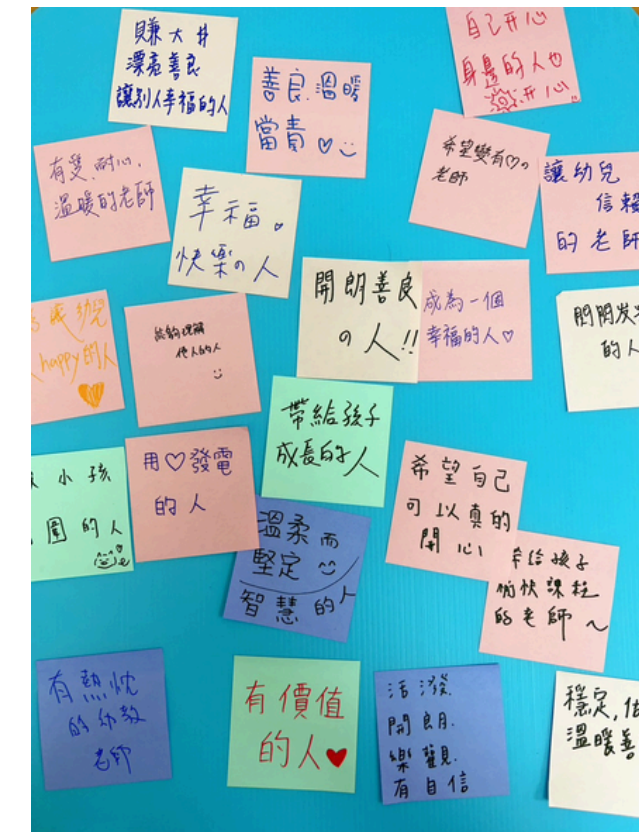 賺大井
漂亮善良
讓別人幸福的人
善良.溫暖
當責♡
自己开心
身邊的人也
开心
有愛.耐心.
溫暖的老師
希望變有♡の
老師
讓幼兒
信賴
的老師
幸福。
快樂の人
開朗善良
の人!!
成為一個
幸福的人♡
的人
幼兒
happy的人
能夠理解
他人的人
帶給孩子
成長的人
小孩
圍的人
用♡發電
的人
希望自己
可以真的
開心
溫柔而
堅定
智慧的人
帶給孩子
愉快課程
的老師~
有熱忱
的幼教
老師
有價值
的人♥
活潑.
開朗.
樂觀.
有自信
穩定,
溫暖善